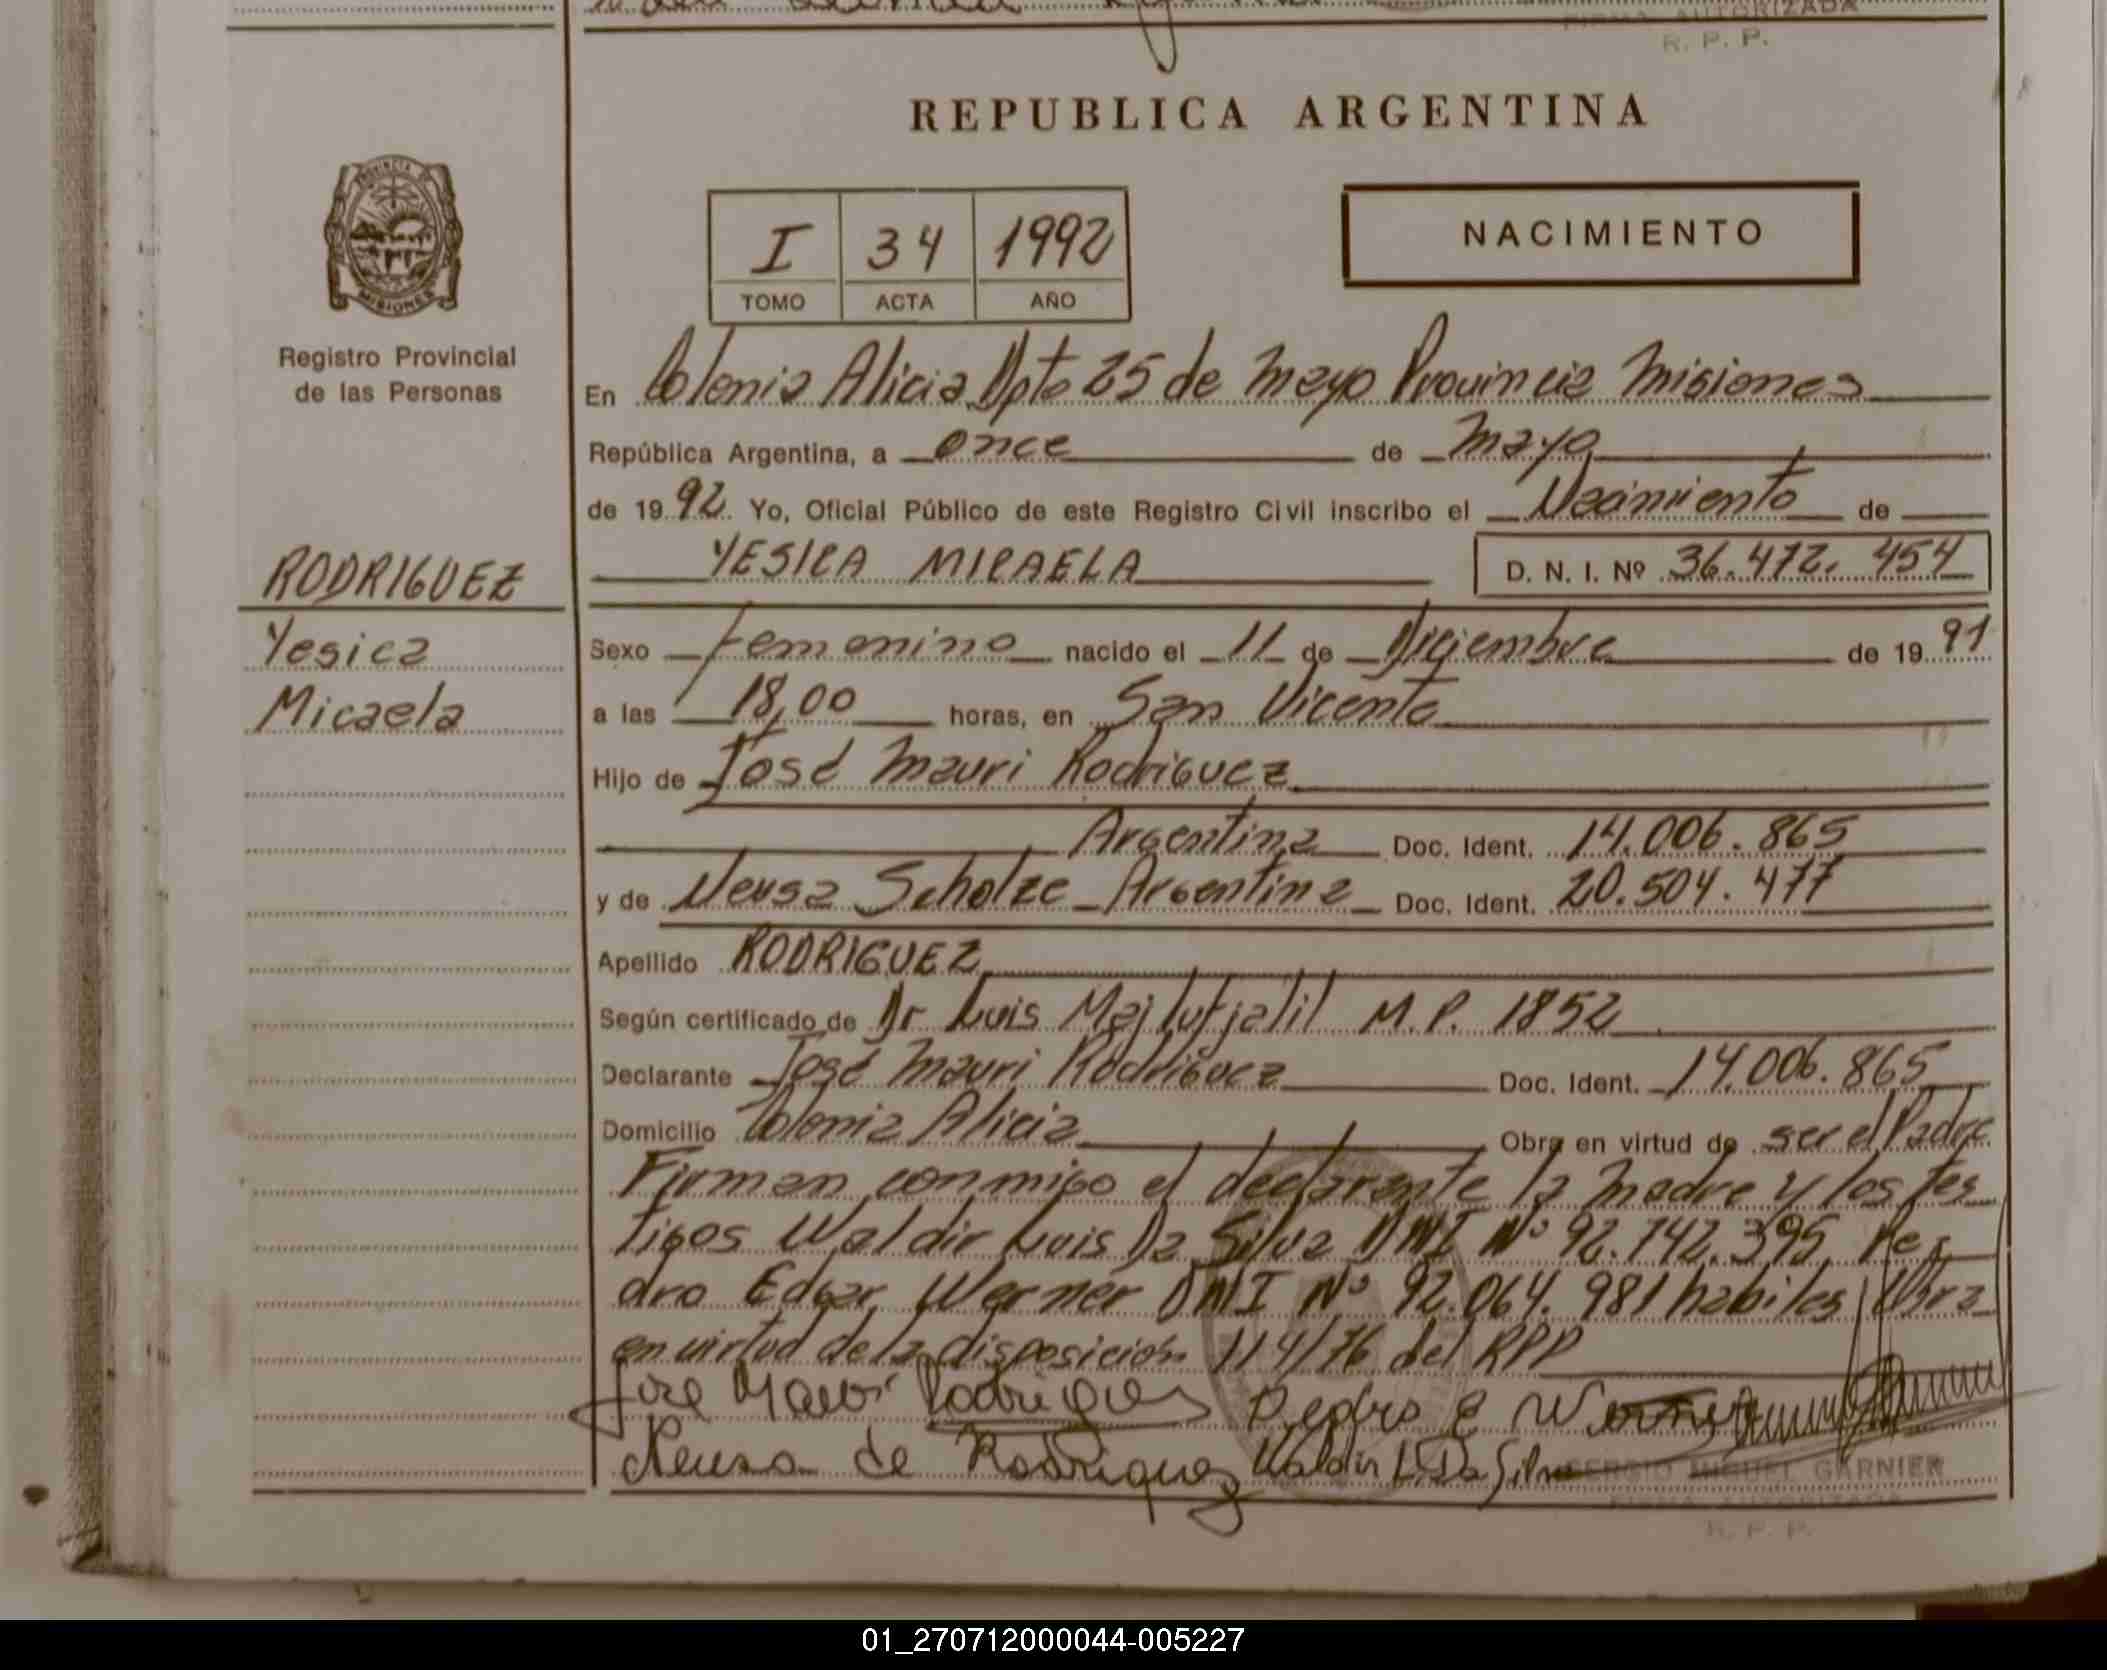 FIRMA AUTORIZADA
R. P. P.
REPUBLICA ARGENTINA
PROVINCIA DE
MISIONES
I 34 1992
TOMO ACTA AÑO
NACIMIENTO
Registro Provincial
de las Personas
RODRIGUEZ
Yesica
Micaela
En Colonia Alicia Dpto 25 de Mayo Provincia Misiones
República Argentina, a once de Mayo
de 1992. Yo, Oficial Público de este Registro Civil inscribo el Nacimiento de
YESICA MICAELA D. N. I. Nº 36.472.454
Sexo Femenino nacido el 11 de Diciembre de 1991
a las 18,00 horas, en San Vicente
Hijo de José Mauri Rodriguez
Argentina Doc. Ident. 14.006.865
y de Neusa Scholze Argentina Doc. Ident. 20.504.477
Apellido RODRIGUEZ
Según certificado de Dr Luis Maj lutjalil M.P. 1852
Declarante José Mauri Rodriguez Doc. Ident. 14.006.865
Domicilio Colonia Alicia Obra en virtud de ser el Padre
Firman conmigo el declarante la Madre y los tes
tigos Waldir Luis Da Silva DNI Nº 92.742.395 Pe
dro Edgar Werner DNI Nº 92.064.981 habiles Obra
en virtud de la disposición 114/76 del RPP
José Mauri Rodrigues Pedro E Werner
Neusa de Rodriguez Waldir L. Da Silva SERGIO MIGUEL GARNIER
FIRMA AUTORIZADA
R. P. P.
01_270712000044-005227